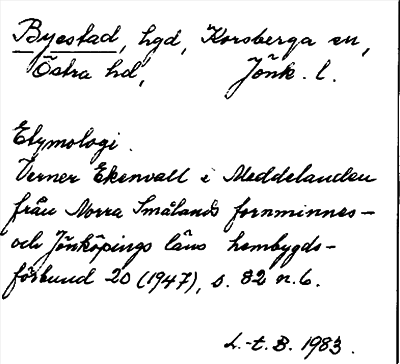 Byestad, hgd, Korsberga sn,
Östra hd, Jönk. l.
Etymologi.
Verner Ekenvall i Meddelanden
från Norra Smålands fornminnes-
och Jönköpings läns hembygds-
förbund 20 (1947), s. 82 n. 6.
L.-t. B. 1983.